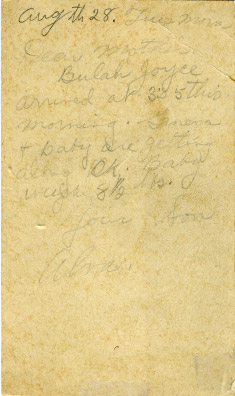 Augth 28. Tues Morn
Dear Mother
Bulah Joyce
arrived at 3:35 this
morning. Geneva
+ baby are getting
along Ok. Baby
weigh 8½ lb.
Your Son